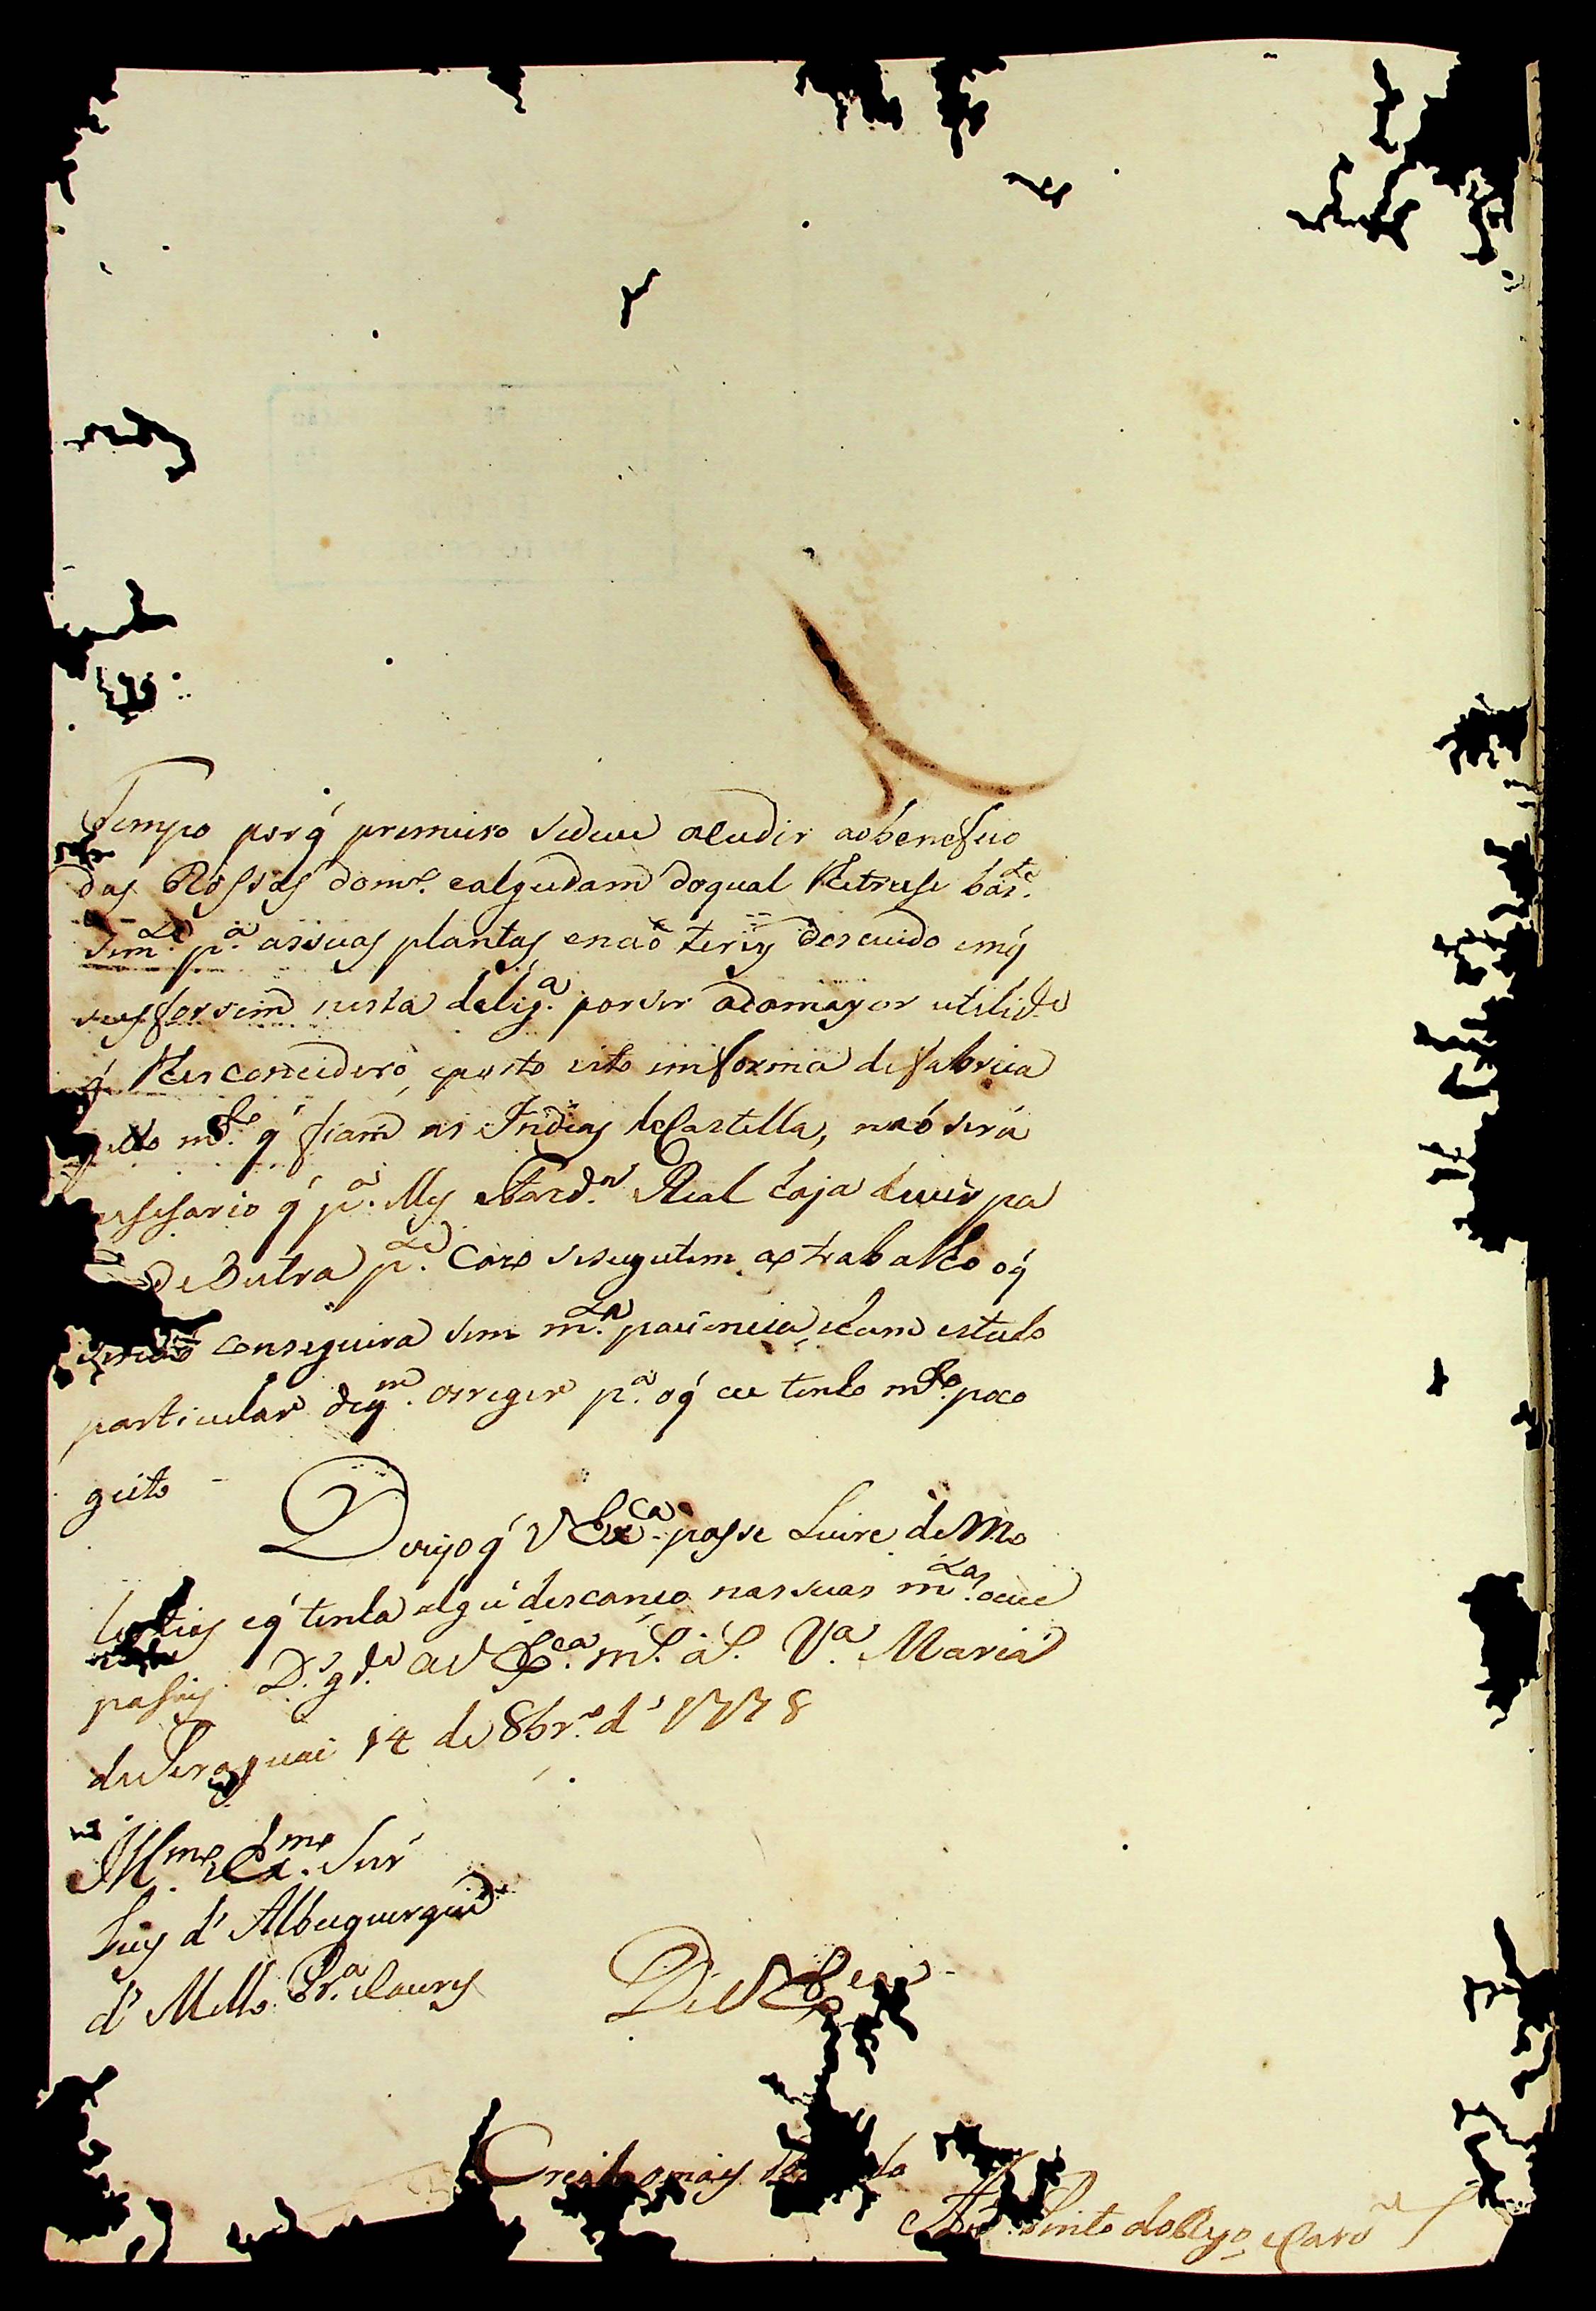 Tempo porq́ premeiro sedeve acudir aobeneficio
das Rossas domo. ealgudam doqual Retruse bas.te
Sem.te p.a assuas plantas, enaõ terey descuido emq́
sesforsem nesta delig.a porser adamayor utelid.e
q́ Resconcidero, eposto isto emforma defabrica
m.to q́ fiam as Indias deCastella, naó será
nesesario q́ p.a My Fazd.a Real haja devir pa
deoutra p.te Cazo sesugutem ao trabalho oq́
senaõ conseguira sem m.ta paciencia, ehum estudo
particular deq.m osreger p.a oq́ eu tenho m.to poco
geito
Dezejo q́ V Ex.ca passe Livre deMo
lestias eq́ tenha algũ descanço nassuas m.tas ocu
pasois D.s g.de a V Ex.ca m.s a.s V.a Maria
do Paraguai 14 de 8br.o d' 1778
Ill.mo e Ex.mo Snr
Luis d' Albuquerque
d' Mello Pr.a Caceres
De V Ex.ca
Creado omais
Pinto do Rego e Carv.o